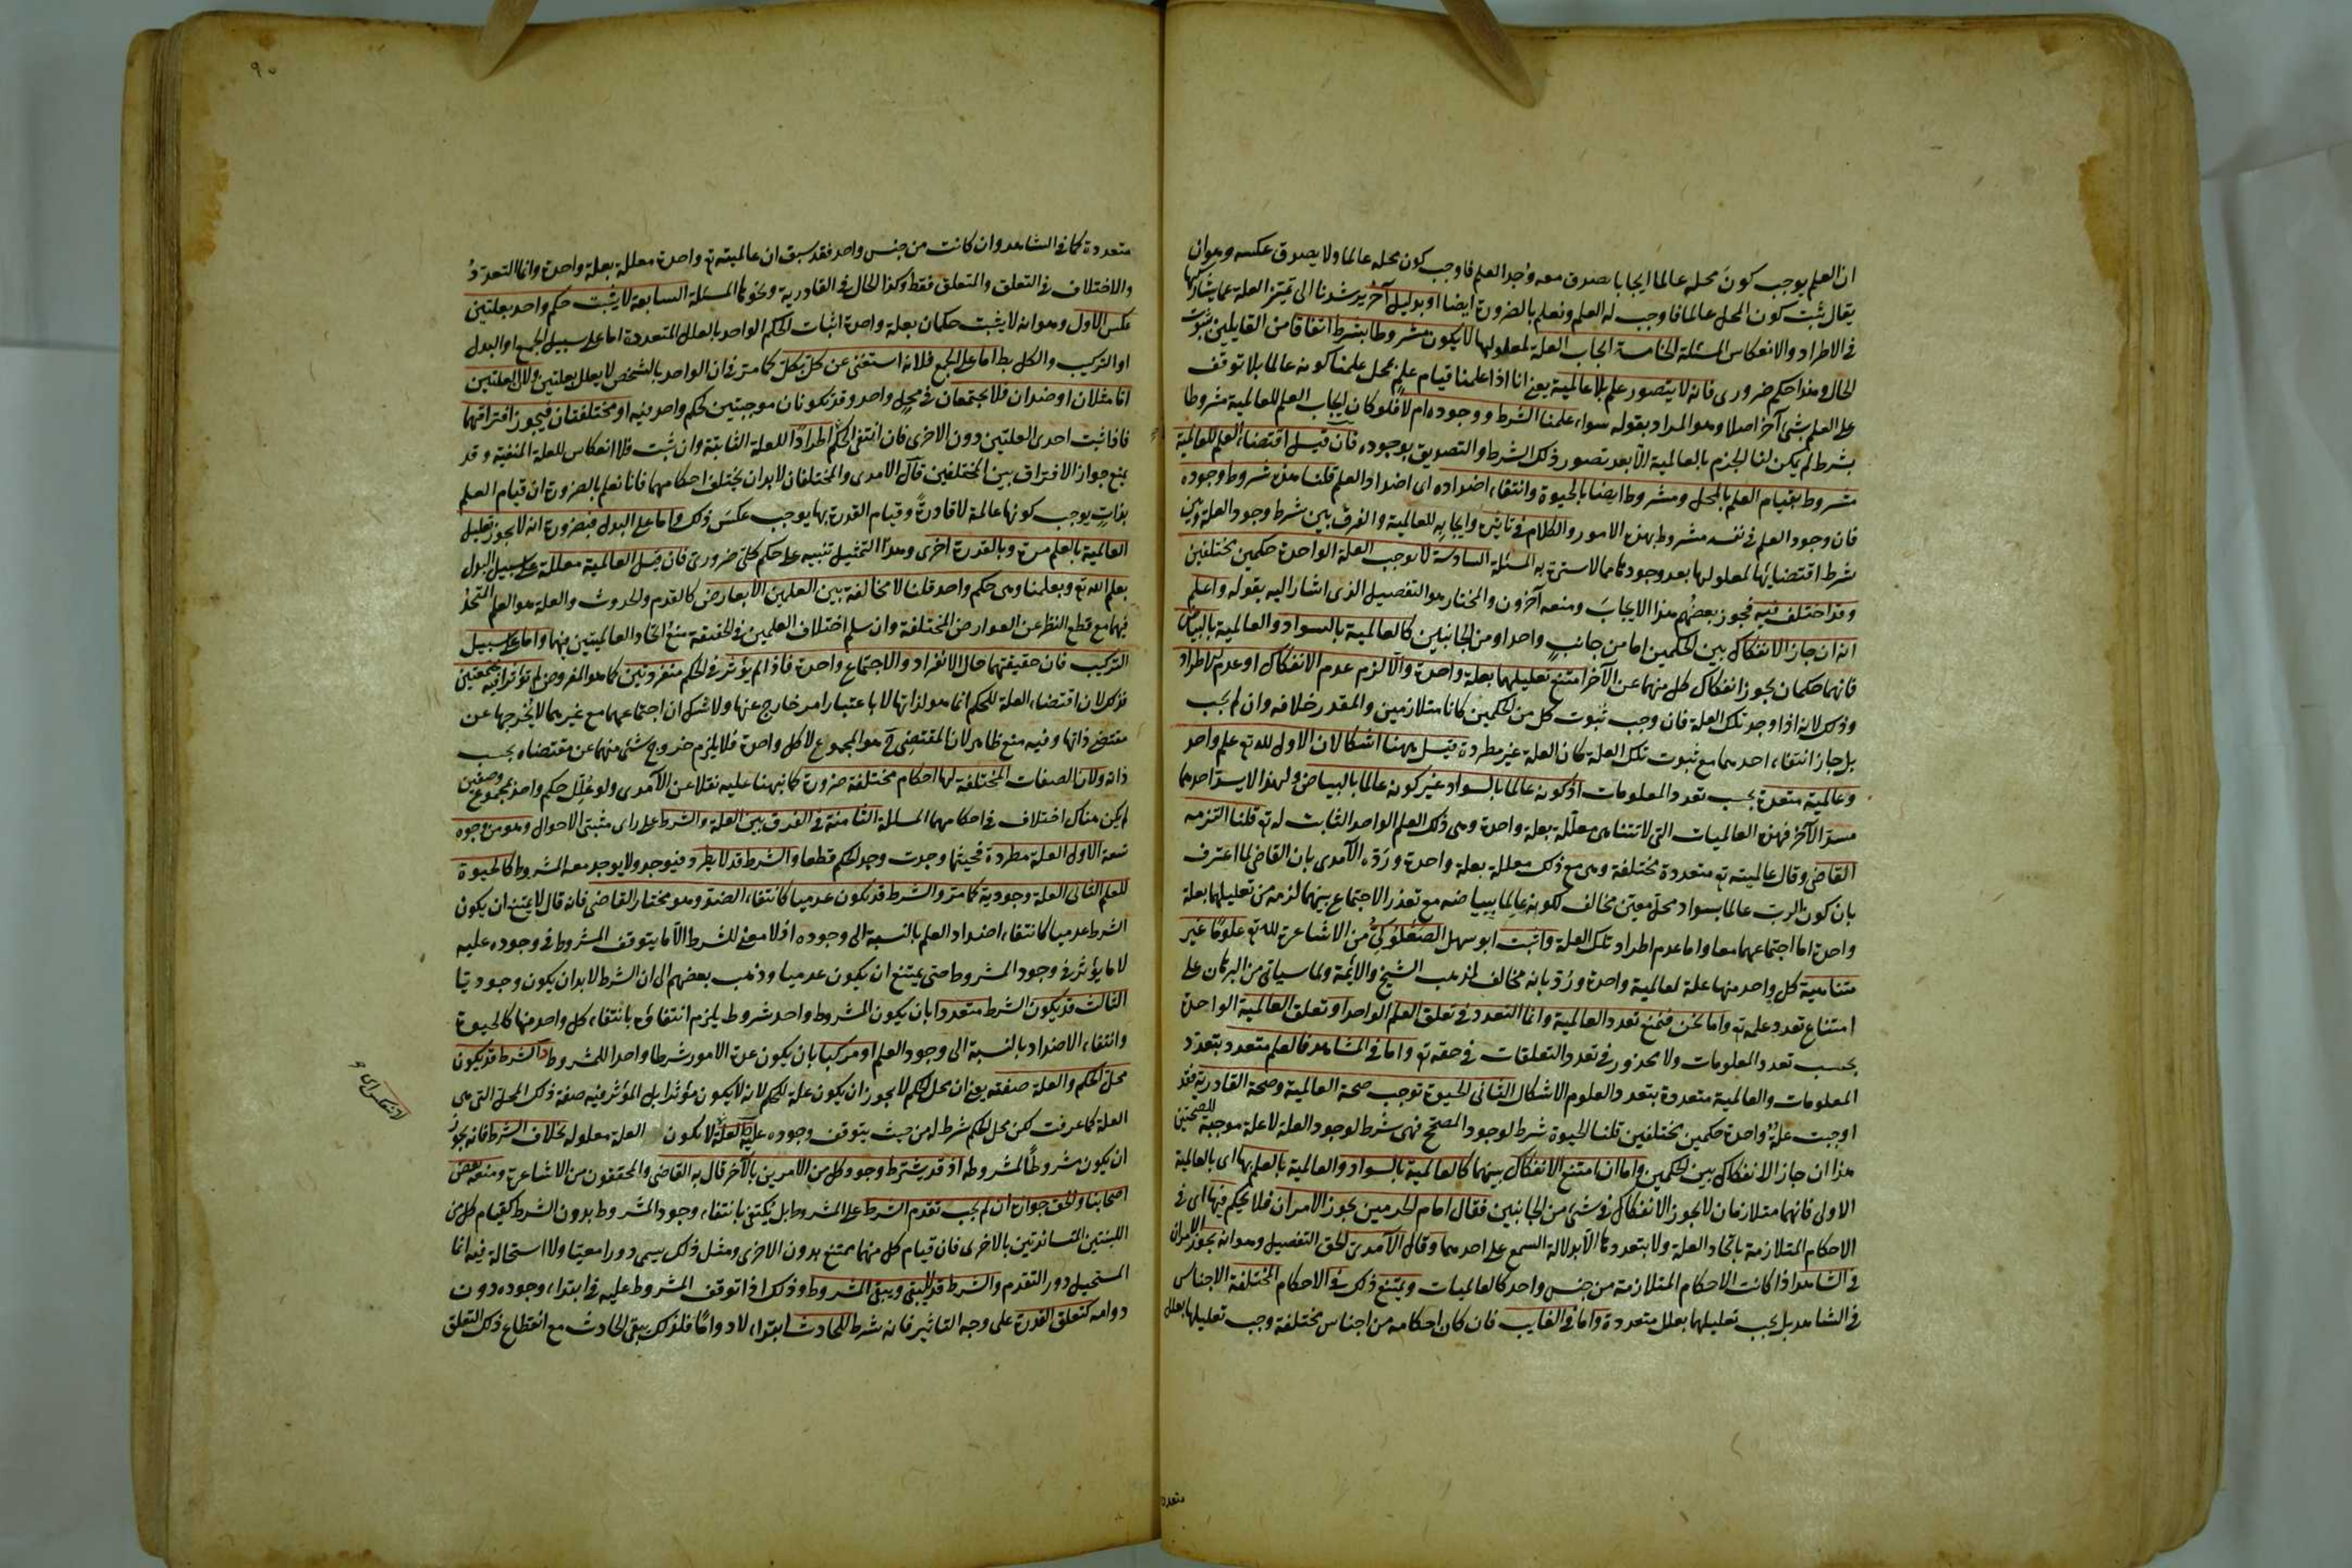 ان العلم يوجب كون محله عالما ايجابا يصدق معه وُجد العلم فاوجب كون محله عالما ولا يصدق عكسه وهو ان
يقال ثبت كون المحل عالما فاوجب له العلم ونعلم بالضرورة ايضا او بدليل آخر يرشدنا الى تميّز العلة عما يشاركها
في الاطراد والانعكاس المسئلة الخامسة ايجاب العلة لمعلولها لا يكون مشروطا بشرط اتفاقا من القايلين بثبوت
الحال وهذا حكم ضروري فانه لا يتصور علم بلا عالمية يعني انا اذا علمنا قيام علمٍ بمحل علمنا كونه عالما بلا توقف
على العلم بشئ آخر اصلا وهو المراد بقوله سواء علمنا الشرط ووجوده ام لا فلو كان ايجاب العلم للعالمية مشروطا
بشرط لم يكن لنا الجزم بالعالمية الا بعد تصور ذلك الشرط والتصديق بوجوده فان قيل اقتضاء العلم للعالمية
مشروط بقيام العلم بالمحل ومشروط ايضا بالحيوة وانتفاء اضداده اى اضداد العلم قلنا هذه شروط وجوده
فان وجود العلم في نفسه مشروط بهذه الامور والكلام في تاثيره وايجابه للعالمية والفرق بين شرط وجود العلة وبين
شرط اقتضائها لمعلولها بعد وجودها مما لا سترة به المسئلة السادسة لا توجب العلة الواحدة حكمين مختلفين
وقد اختلف فيه فجوز بعضهم هذا الايجابَ ومنعه آخرون والمختار هو التفصيل الذى اشار اليه بقوله واعلم
انه ان جاز الانفكاك بين الحكمين اما من جانبٍ واحد او من الجانبين كالعالمية بالسواد والعالمية بالبياض
فانهما حكمان يجوز انفكاك كل منهما عن الآخر امتنع تعليلهما بعلة واحدة والّا لزم عدم الانفكاك او عدم الاطراد
وذلك لانه اذا وجد تلك العلة فان وجب ثبوت كل من الحكمين كانا متلازمين والمقدر خلافه وان لم يجب
بل جاز انتفاء احدهما مع ثبوت تلك العلة كان العلة غير مطردة قيل ههنا اشكالان الاول لله تع علم واحد
وعالمية متعددة بحسب تعدد المعلومات اذ كونه عالما بالسواد غير كونه عالما بالبياض ولهذا لا يسد احدهما
مسدّ الآخر فهذه العالميات التى لا تتناهى معلّلة بعلة واحدة وهى ذلك العلم الواحد الثابت له تع قلنا التزمه
القاضى وقال عالميته تع متعددة مختلفة وهى مع ذلك معللة بعلة واحدة وردّه الآمدى بان القاضى لما اعترف
بان كون الرب عالما بسواد محلّ معيّن مخالف لكونه عالما ببياضه مع تعذر الاجتماع بينهما لزمه من تعليلهما بعلة
واحدة اما اجتماعهما معا واما عدم اطراد تلك العلة واثبت ابو سهل الصعلوكىُّ من الاشاعرة لله تع علومًا غير
متناهية كل واحد منها علة لعالمية واحدة ورُدّ بانه مخالف لمذهب الشيخ والائمة ولما سياتى من البرهان على
امتناع تعدد علمه تع واما نحن فنمنع تعدد العالمية وانما التعدد في تعلق العلم الواحد او تعلق العالمية الواحدة
بحسب تعدد المعلومات ولا محذور في تعدد التعلقات في حقه تع واما في الشاهد فالعلم متعدد بتعدّد
المعلومات والعالمية متعددة بتعدد العلوم الاشكال الثانى الحيوة توجب صحة العالمية وصحة القادرية فقد
اوجبت علةٌ واحدة حكمين مختلفين قلنا الحيوة شرط لوجود المصحح فهى شرط لوجود العلة لا علة موجبة للصحتين
هذا ان جاز الانفكاك بين الحكمين واما ان امتنع الانفكاك بينهما كالعالمية بالسواد والعالمية بالعلم بها اى بالعالمية
الاولى فانهما متلازمان لا يجوز الانفكاك في شئ من الجانبين فقال امام الحرمين يجوز الامران فلا يحكم فيها اى في
الاحكام المتلازمة باتحاد العلة ولا بتعددها الا بدلالة السمع على احدهما وقال الآمدى الحق التفصيل وهو انه يجوز الامران
في الشاهد اذا كانت الاحكام المتلازمة من جنس واحد كالعالميات ويمتنع ذلك في الاحكام المختلفة الاجناس
في الشاهد بل يجب تعليلها بعلل متعددة واما في الغايب فان كان احكامه من اجناس مختلفة وجب تعليلها بعلل
متعدد
٩٠
متعددة كما في الشاهد وان كانت من جنس واحد فقد سبق ان عالميته تع واحدة معللة بعلة واحدة وانما التعدّدُ
والاختلاف في التعلق والمتعلق فقط وكذا الحال في القادرية ونحوها المسئلة السابعة لا يثبت حكم واحد بعلتين
عكس الاول وهو انه لا يثبت حكمان بعلة واحدة اثبات الحكم الواحد بالعلل المتعددة اما على سبيل الجمع او البدل
او التركيب والكل بط اما على الجمع فلانه استغنى عن كلّ بكلّ كما مرّ في ان الواحد بالشخص لا يعلل بعلتين ولان العلتين
اما مثلان او ضدان فلا يجتمعان في محل واحد وقد يكونان موجبتين لحكم واحد فيه او مختلفتان فيجوز افتراقهما
فاذا ثبت احدى العلتين دون الاخرى فان انتفى الحكم فلا اطراد للعلة الثابتة وان ثبت فلا انعكاس للعلة المنفية وقد
يمنع جواز الافتراق بين المختلفين قال الآمدى والمختلفان لابد ان يختلف احكامهما فانا نعلم بالضرورة ان قيام العلم
بذات يوجب كونها عالمة لا قادرةً وقيام القدرة بها يوجب عكسَ ذلك واما على البدل فبضرورة انه لا يجوز تعليل
العالمية بالعلم مرة وبالقدرة اخرى وهذا التمثيل تنبيه على حكم كلىّ ضرورى فان قيل العالمية معللة على سبيل البدل
بعلم الله تع وبعلمنا وهى حكم واحد قلنا لا مخالفة بين العلمين الا بعارض كالقدم والحدوث والعلة هو العلم المتحد
فيهما مع قطع النظر عن العوارض المختلفة وان سلم اختلاف العلمين في الحقيقة مُنع اتحاد العالميتين فيهما واما على سبيل
التركيب فان حقيقتهما حال الانفراد والاجتماع واحدة فاذا لم يؤثر في الحكم منفردتين كما هو المفروض لم تؤثرا فيه مجتمعتين
وذلك لان اقتضاء العلة للحكم انما هو لذاتها لا باعتبار امر خارج عنها ولا شك ان اجتماعهما مع غيرهما لا يخرجها عن
مقتضى ذاتها وفيه منع ظاهر لان المقتضى ح هو المجموع لا كل واحدة فلا يلزم خروج شئ منهما عن مقتضاه بحسب
ذاته ولان الصفات المختلفة لها احكام مختلفة ضرورة كما نبهنا عليه نقلا عن الآمدى ولو عُلّل حكم واحد بمجموع وصفين
لم يكن هناك اختلاف في احكامهما المسئلة الثامنة في الفرق بين العلة والشرط على راى مثبتى الاحوال وهو من وجوه
تسعة الاول العلة مطردة فحيثما وجدت وجد الحكم قطعا والشرط قد لا يطرد فيوجد ولا يوجد معه المشروط كالحيوة
للعلم الثانى العلة وجودية كما مرّ والشرط قد يكون عدميا كانتفاء الضدّ وهو مختار القاضى فانه قال لا يمتنع ان يكون
الشرط عدميا كانتفاء اضداد العلم بالنسبة الى وجوده اذ لا معنى للشرط الا ما يتوقف المشروط في وجوده عليه
لا ما يؤثر في وجود المشروط حتى يمتنع ان يكون عدميا وذهب بعضهم الى ان الشرط لابد ان يكون وجوديّا
الثالث قد يكون الشرط متعددا بان يكون للمشروط الواحد شروط يلزم انتفاؤه بانتفاء كل واحد منها كالحيوة
وانتفاء الاضداد بالنسبة الى وجود العلم او مركبا بان يكون عدة الامور شرطا واحدا للمشروط الشرط قد يكون
محلّ الحكم والعلة صفته يعنى ان محل الحكم لا يجوز ان يكون علة للحكم لانه لا يكون مؤثرا بل المؤثر فيه صفة ذلك المحل التى هى
العلة كما عرفت لكن محل الحكم شرط له من حيث يتوقف وجوده عليه العلة لا يكون العلة معلوله بخلاف الشرط فانه يجوز
لا تنعكس اى و
ان يكون مشروطًا لمشروطه اذ قد يشترط وجود كل من الامرين بالآخر قال به القاضى والمحققون من الاشاعرة ومنعه بعض
اصحابنا والحق جوازه ان لم يجب تقدم الشرط على المشروط بل يكتفى بانتفاء وجود المشروط بدون الشرط كقيام كل من
اللبنتين المتساندتين بالاخرى فان قيام كل منهما يمتنع بدون الاخرى ومثل ذلك يسمى دورا معيّا ولا استحالة فيه انما
المستحيل دور التقدم والشرط قد لا يبقى ويبقى المشروط وذلك اذا توقف المشروط عليه في ابتداء وجوده دون
دوامه كتعلق القدرة على وجه التاثير فانه شرط للحادث ابتداء لا دوامًا فلذلك يبقى الحادث مع انقطاع ذلك التعلق